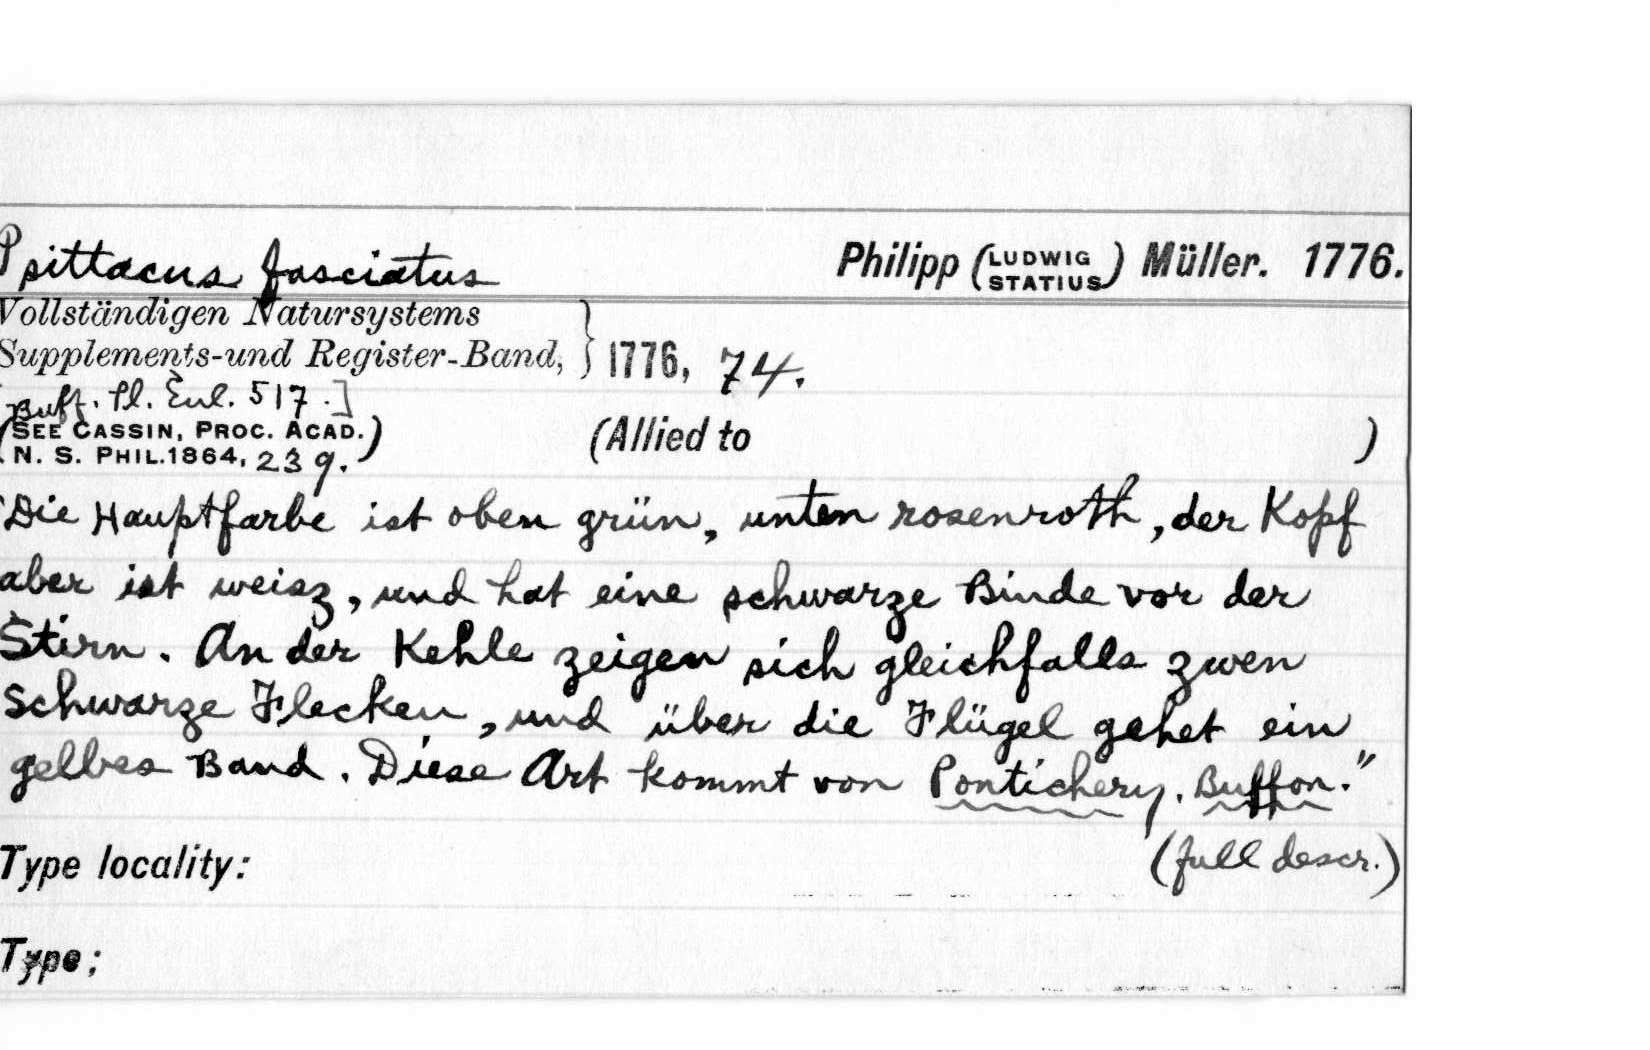 Psittacus fasciatus Philipp (LUDWIG STATIUS) Müller. 1776.
Vollständigen Natursystems
Supplements-und Register-Band, } 1776, 74.
[Buff. Pl. Enl. 517.]
(SEE CASSIN, PROC. ACAD.
N. S. PHIL. 1864, 239.) (Allied to )
"Die Hauptfarbe ist oben grün, unten rosenroth, der Kopf
aber ist weisz, und hat eine schwarze Binde vor der
Stirn. An der Kehle zeigen sich gleichfalls zwen
schwarze Flecken, und über die Flügel gehet ein
gelbes Band. Diese Art kommt von Pontichery. Buffon."
(full descr.)
Type locality:
Type;